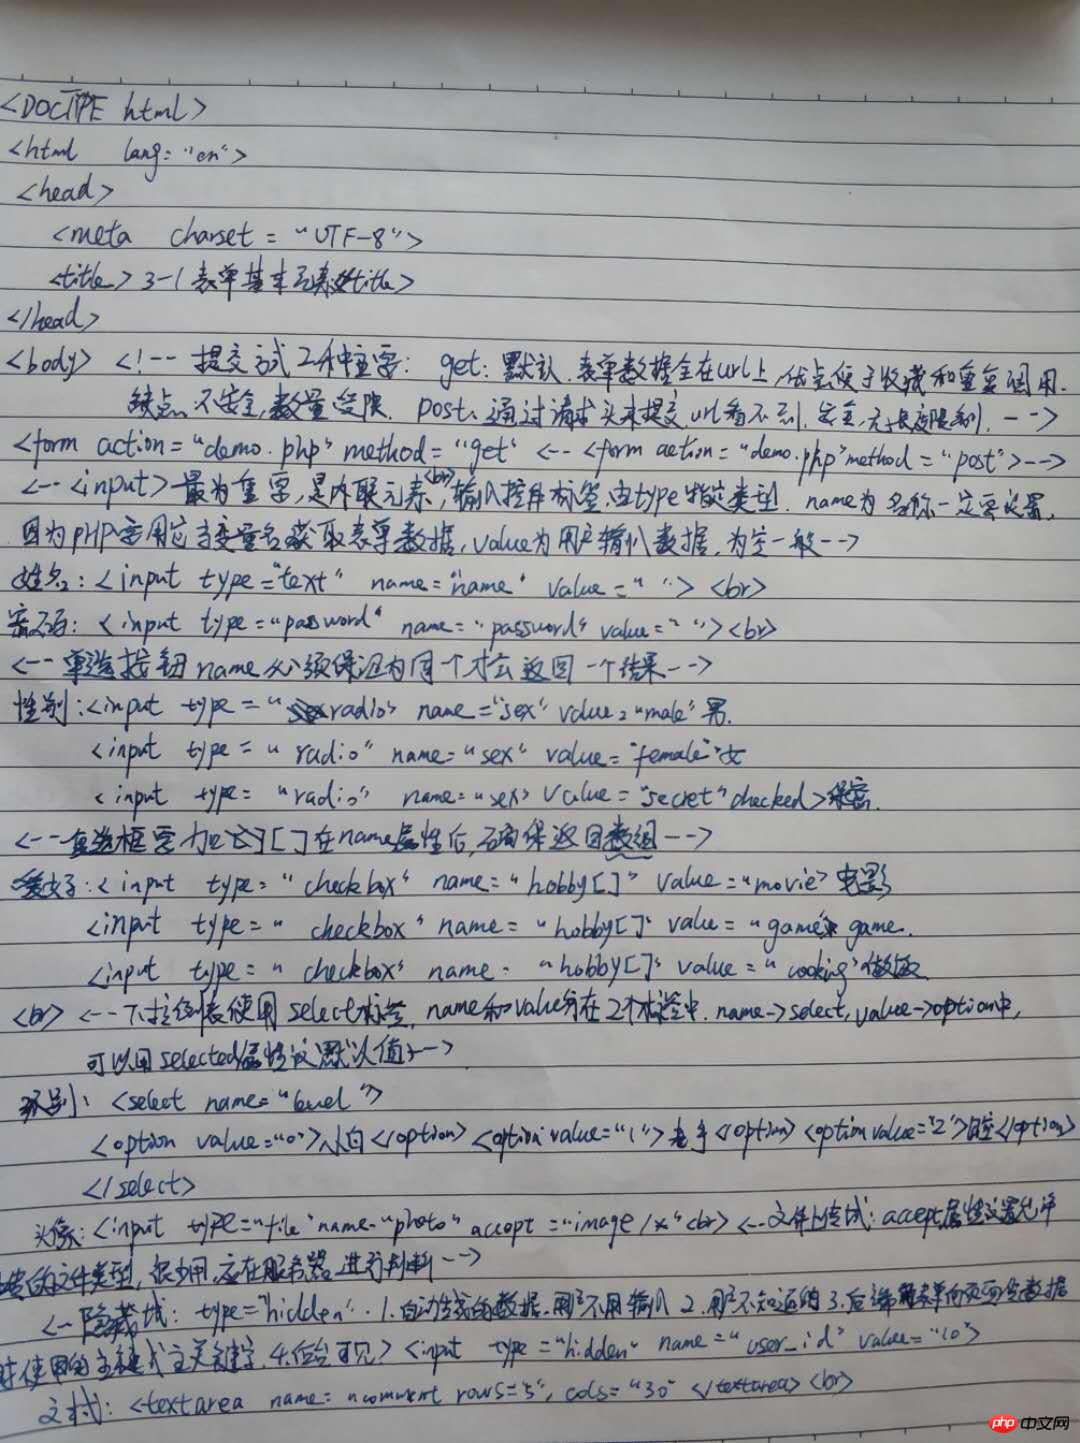 <DOCTYPE html>
<html lang="en">
<head>
<meta charset="UTF-8">
<title>3-1表单基本元素</title>
</head>
<body> <!-- 提交方式2种主要: get:默认.表单数据全在url上,优点便于收藏和重复调用.
缺点,不安全,数量受限. post、通过请求头来提交,url看不到,安全,无长度限制. -->
<form action="demo.php" method="get" <-- <form action="demo.php" method="post">-->
<--<input>最为重要,是内联元素,<br>输入控件标签,由type指定类型. name为名称一定要设置,
因为PHP要用它当变量名获取表单数据,value为用户输入数据,为空一般-->
姓名:<input type="text" name="name" value=" "> <br>
密码:<input type="password" name="password" value=" "><br>
<-- 单选按钮name必须保证为同一个才会返回一个结果-->
性别:<input type="radio" name="sex" value="male"男.
<input type="radio" name="sex" value="female"女
<input type="radio" name="sex" value="secret" checked>保密.
<--复选框要加[]在name属性后,确保返回数组-->
爱好:<input type="checkbox" name="hobby[]" value="movie>电影
<input type="checkbox" name="hobby[]" value="game" game.
<input type="checkbox" name="hobby[]" value="cooking"做饭
<br> <--下拉列表使用select标签,name和value分在2个标签中.name->select,value->option中,
可以用selected属性设默认值-->
级别:<select name="level">
<option value="0">小白</option> <option value="1">老手</option> <option value="2"></option>
</select>
头像:<input type="file" name="photo" accept="image/*"<br> <--文件上传域:accept属性设置允许
上传的文件类型,很少用,应在服务器进行判断-->
<--隐藏域: type="hidden". 1.自动生成的数据.用户不用输入 2.用户不知道的 3.后端
4.后台可见> <input type="hidden" name="user_id" value="10">
文本域:<textarea name="comment rows="5", cols="30" </textarea> <br>
php 中文网